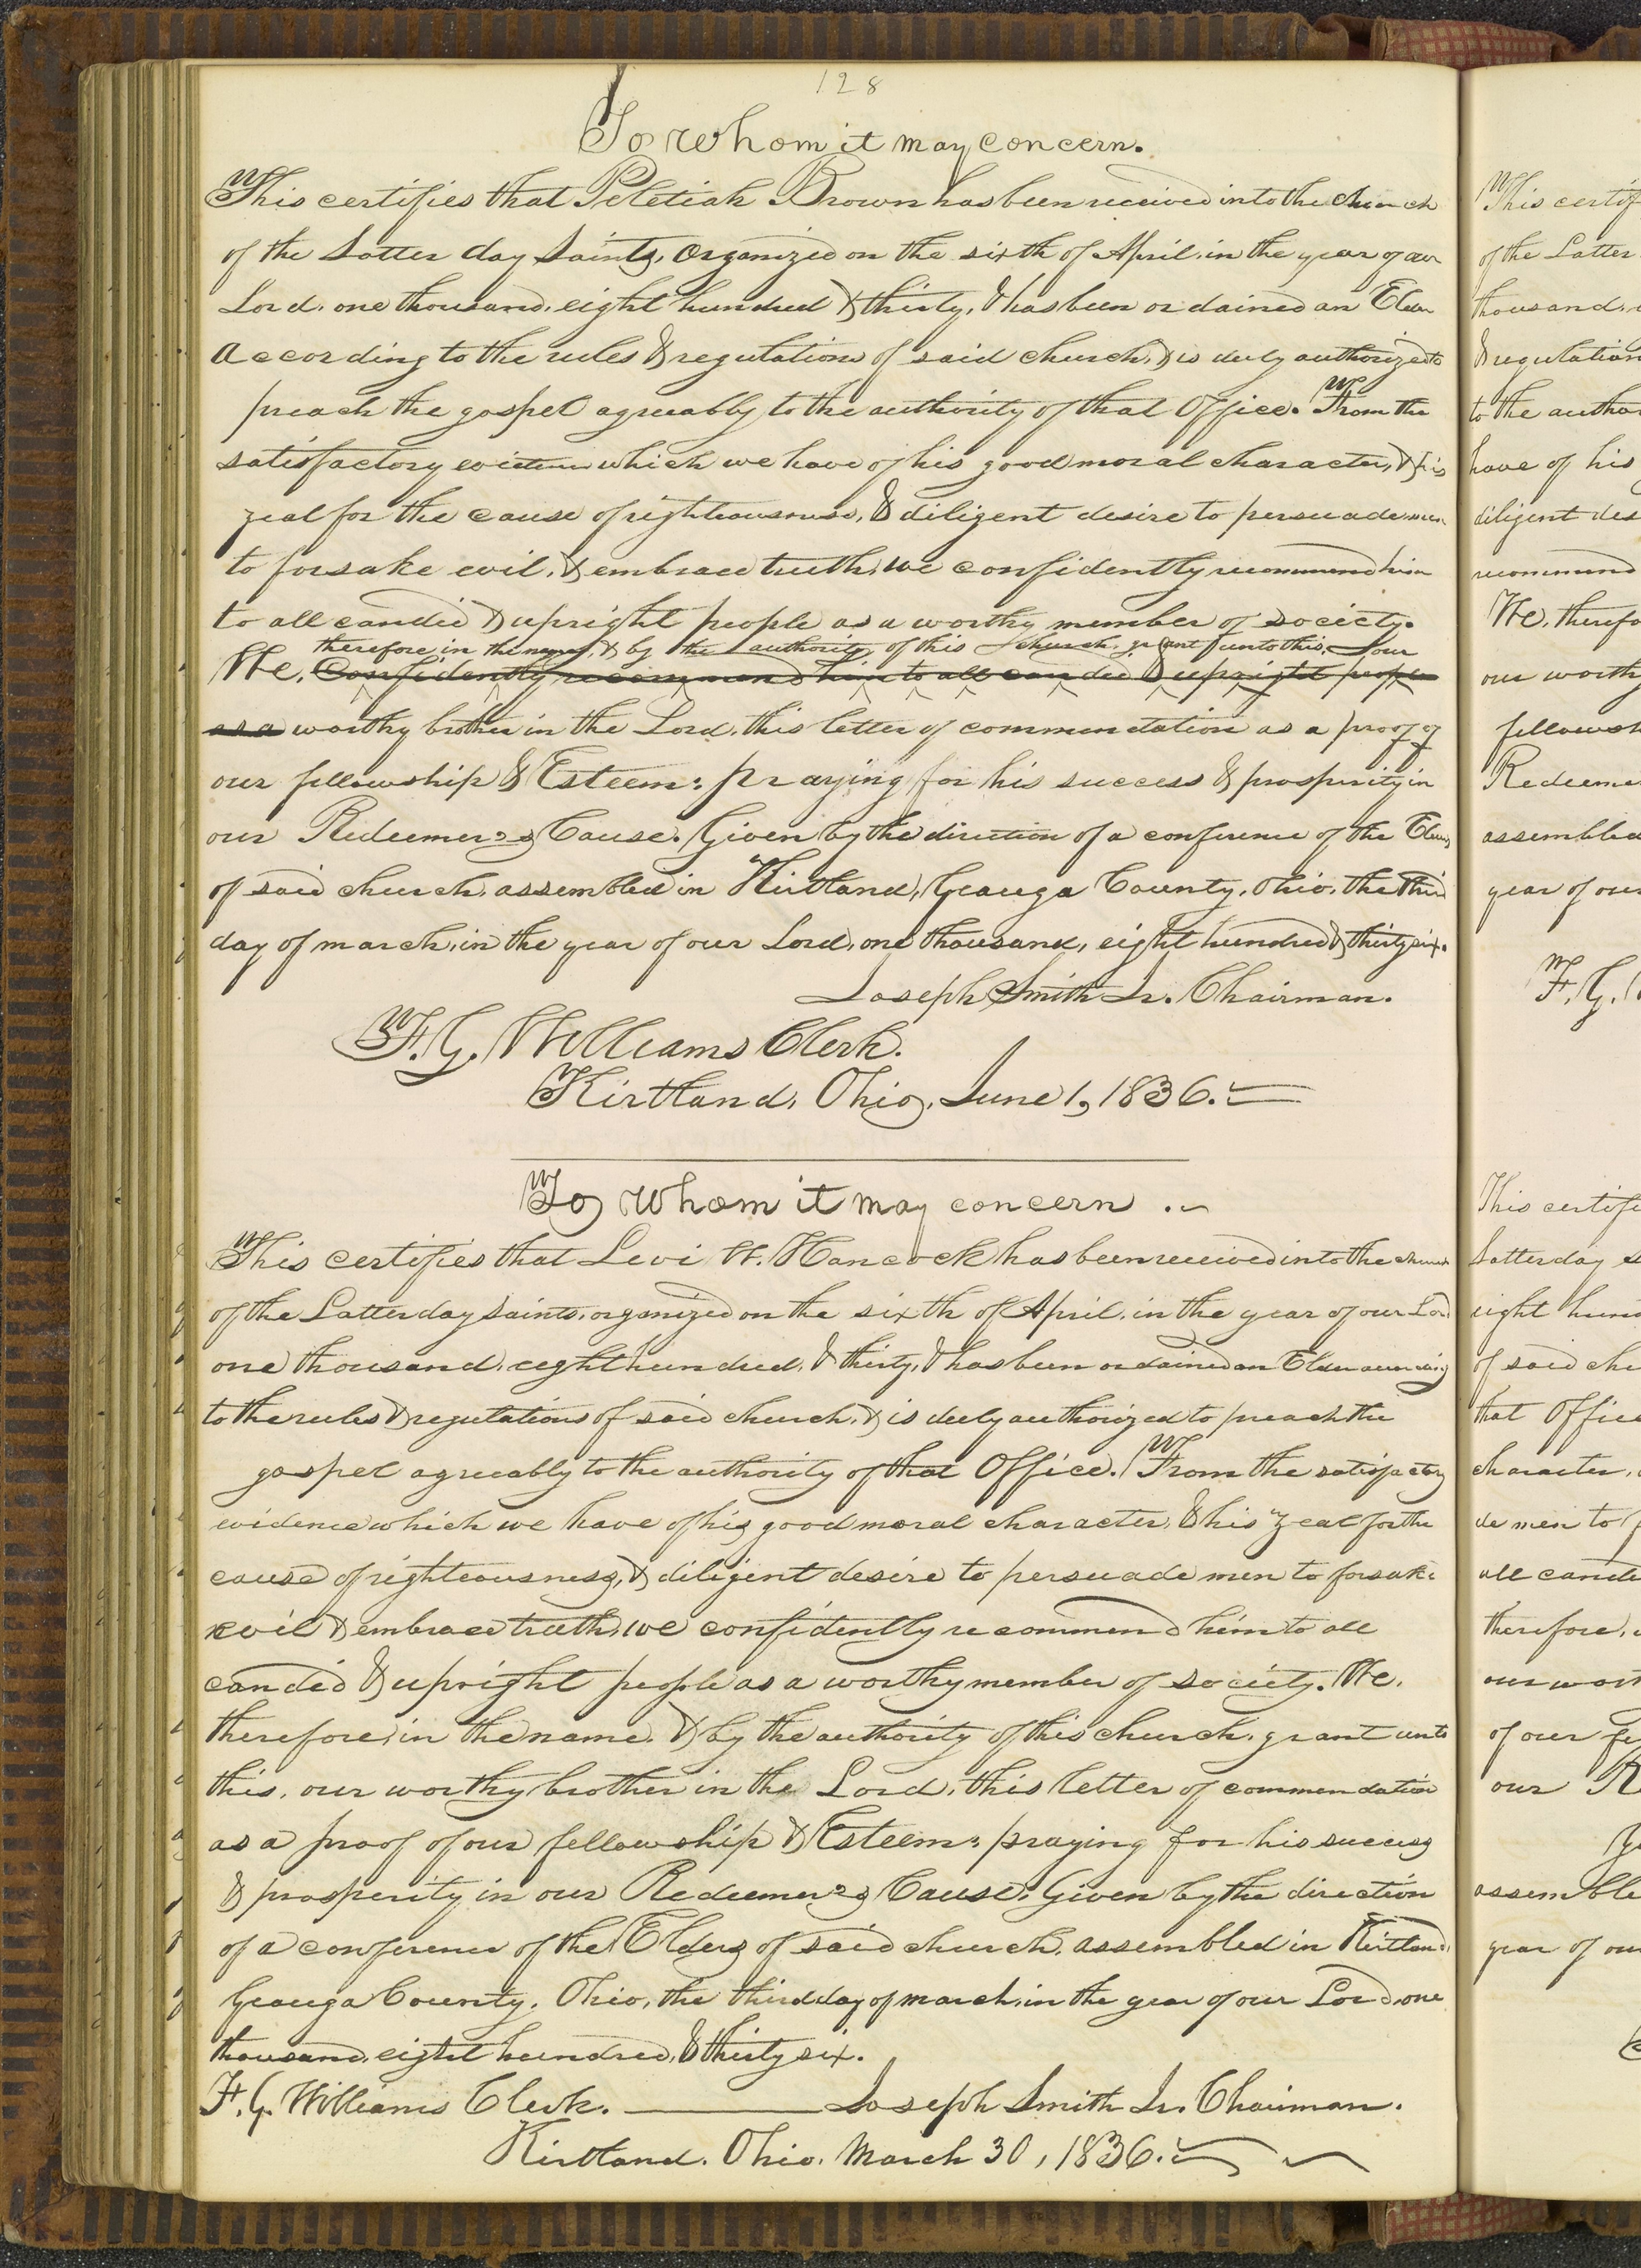 128
To Whom it may concern.
This certifies that Peletiah Brown has been received into the church
of the Latter day Saints, Organized on the sixth of April, in the year of our
Lord, one thousand, eight hundred & thirty, & has been ordained an Elder
According to the rules & regulations of said church, & is duly authorized to
preach the gospel agreeably to the authority of that Office. From the
satisfactory evidence which we have of his good moral character, & his
zeal for the cause of righteousness, & diligent desire to persuade men
to forsake evil, & embrace truth, we confidently recommend him
to all candid & upright people as a worthy member of society.
therefore in the name, & by the authority of this church, grant unto this, our
We, Confidently recommend him to all candid & upright people
as a worthy brother in the Lord, this letter of commendation as a proof of
our fellowship & Esteem: praying for his success & prosperity in
our Redeemer's Cause. Given by the direction of a conference of the Elders
of said church, assembled in Kirtland, Geauga County, Ohio, the third
day of march, in the year of our Lord, one thousand, eight hundred & thirty six.
Joseph Smith Jr. Chairman.
F. G. Williams Clerk.
Kirtland, Ohio, June 1, 1836.
To Whom it may concern.
This certifies that Levi W. Hancock has been received into the church
of the Latter day Saints, organized on the sixth of April, in the year of our Lord
one thousand, eight hundred, & thirty, & has been ordained an Elder according
to the rules & regulations of said church, & is duly authorized to preach the
gospel agreeably to the authority of that Office. From the satisfactory
evidence which we have of his good moral character, & his zeal for the
cause of righteousness, & diligent desire to persuade men to forsake
evil & embrace truth, we confidently recommend him to all
candid & upright people as a worthy member of society. We,
therefore, in the name, & by the authority of this church, grant unto
this, our worthy brother in the Lord, this letter of commendation
as a proof of our fellowship & Esteem: praying for his success
& prosperity in our Redeemer's Cause. Given by the direction
of a conference of the Elders of said church, assembled in Kirtland,
Geauga County, Ohio, the third day of march, in the year of our Lord, one
thousand, eight hundred, & thirty six.
F. G. Williams Clerk. Joseph Smith Jr. Chairman.
Kirtland, Ohio, March 30, 1836.
This certif
of the Latter
thousand,
& regulation
to the autho
have of his
diligent des
recommend
We, therefo
our worthy
fellowsh
Redeeme
assembled
year of our
F. G.
This certifi
Latter day
eight hund
of said chu
that Office
character,
de men to
all candi
therefore,
our wort
of our fe
our R
assemble
year of our